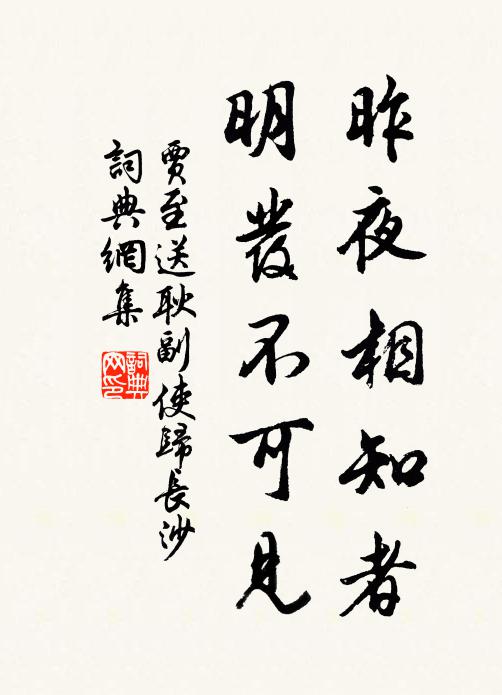 昨夜相知者
明發不可見
賈至送耿副使歸長沙
詞典網集
詞典网印